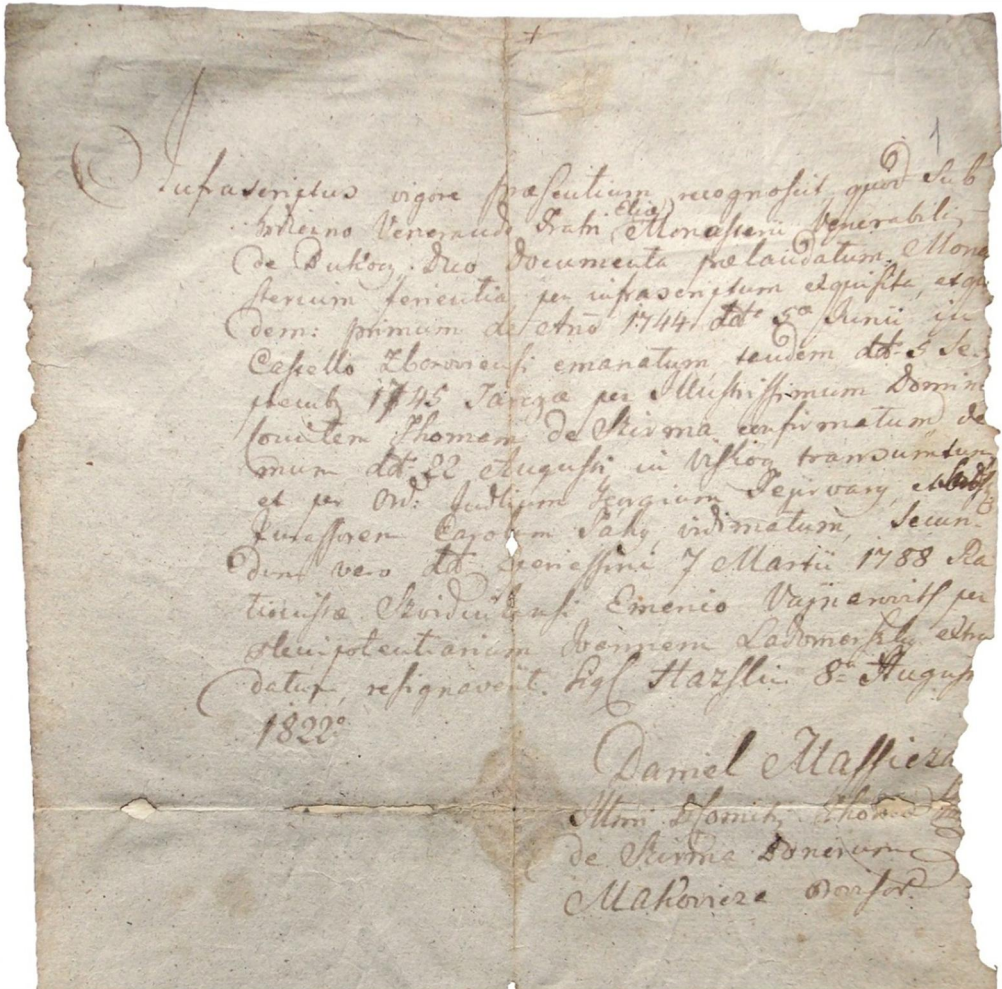 1
Infrascriptus vigore præsentium recognoscit, quod sub
Eliæ
Fratri Monasterii Venerabilis
de Bukocz, Duo Documenta prælaudatum Mona
sterium ferientia per infrascriptum exquisita, et qui
dem: primum de Año 1744 ddto 5a Junii in
Castello Zboroviensi emanatum, tandem ddt 5 Se
ptemb 1745 per Illustrissimum Domin
Comitem Thomam de Szirma confirmatum de
mum ddt 22 Augusti in transumtum
et per Ord: Judlium Georgium et
Jurassorem Carolum vidimatum, Secun
dum vero ddt Eperiessini 7 Martii 1788 Ra
tionistæ Emerico per
plenipotentiarium Joannem Ladomerszky extra
datum, resignaverit. Sigl Hazslin 8a August
1822o
Daniel
Illmi D Comitis
de Szirma Bonorum
Makovicza